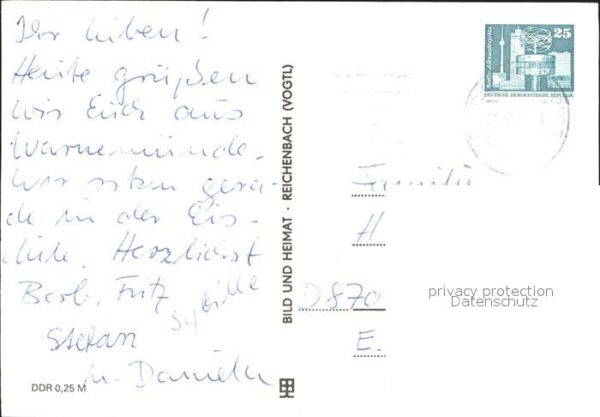 Ihr Lieben!
Heute grüßen
wir Euch aus
Warnemünde.
Wir sitzen gera-
de in der Eis-
diele. Herzlichst
Barb. Fritz
Sybille
Stefan
u. Daniela
DDR 0,25 M
BILD UND HEIMAT · REICHENBACH (VOGTL)
25
Berlin, Alexanderplatz
DEUTSCHE DEMOKRATISCHE REPUBLIK
Familie
H
D 870
E.
privacy protection
Datenschutz